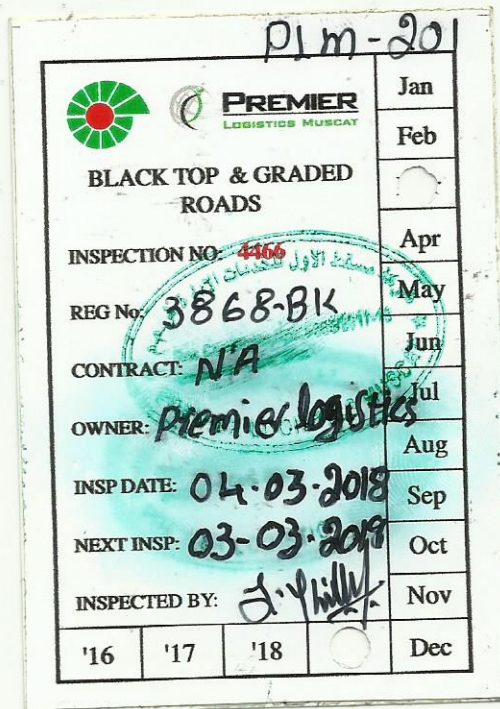 PLM-201
PREMIER
LOGISTICS MUSCAT
BLACK TOP & GRADED
ROADS
INSPECTION NO: 4466
REG No: 3868-BK
CONTRACT: N'A
OWNER: Premier logistics
INSP DATE: 04-03-2018
NEXT INSP: 03-03-2019
INSPECTED BY:
Jan
Feb
Apr
May
Jun
Jul
Aug
Sep
Oct
Nov
Dec
'16
'17
'18